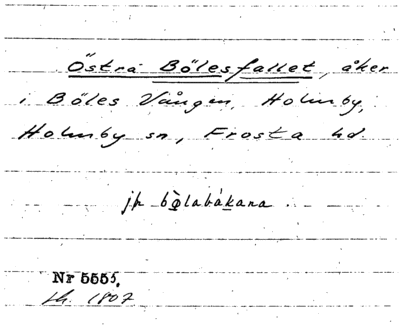 Östra Bölesfallet, åker
i Böles Vången, Holmby,
Holmby sn, Frosta hd
jfr bò̱labáḵana.
Nr 5555,
1807